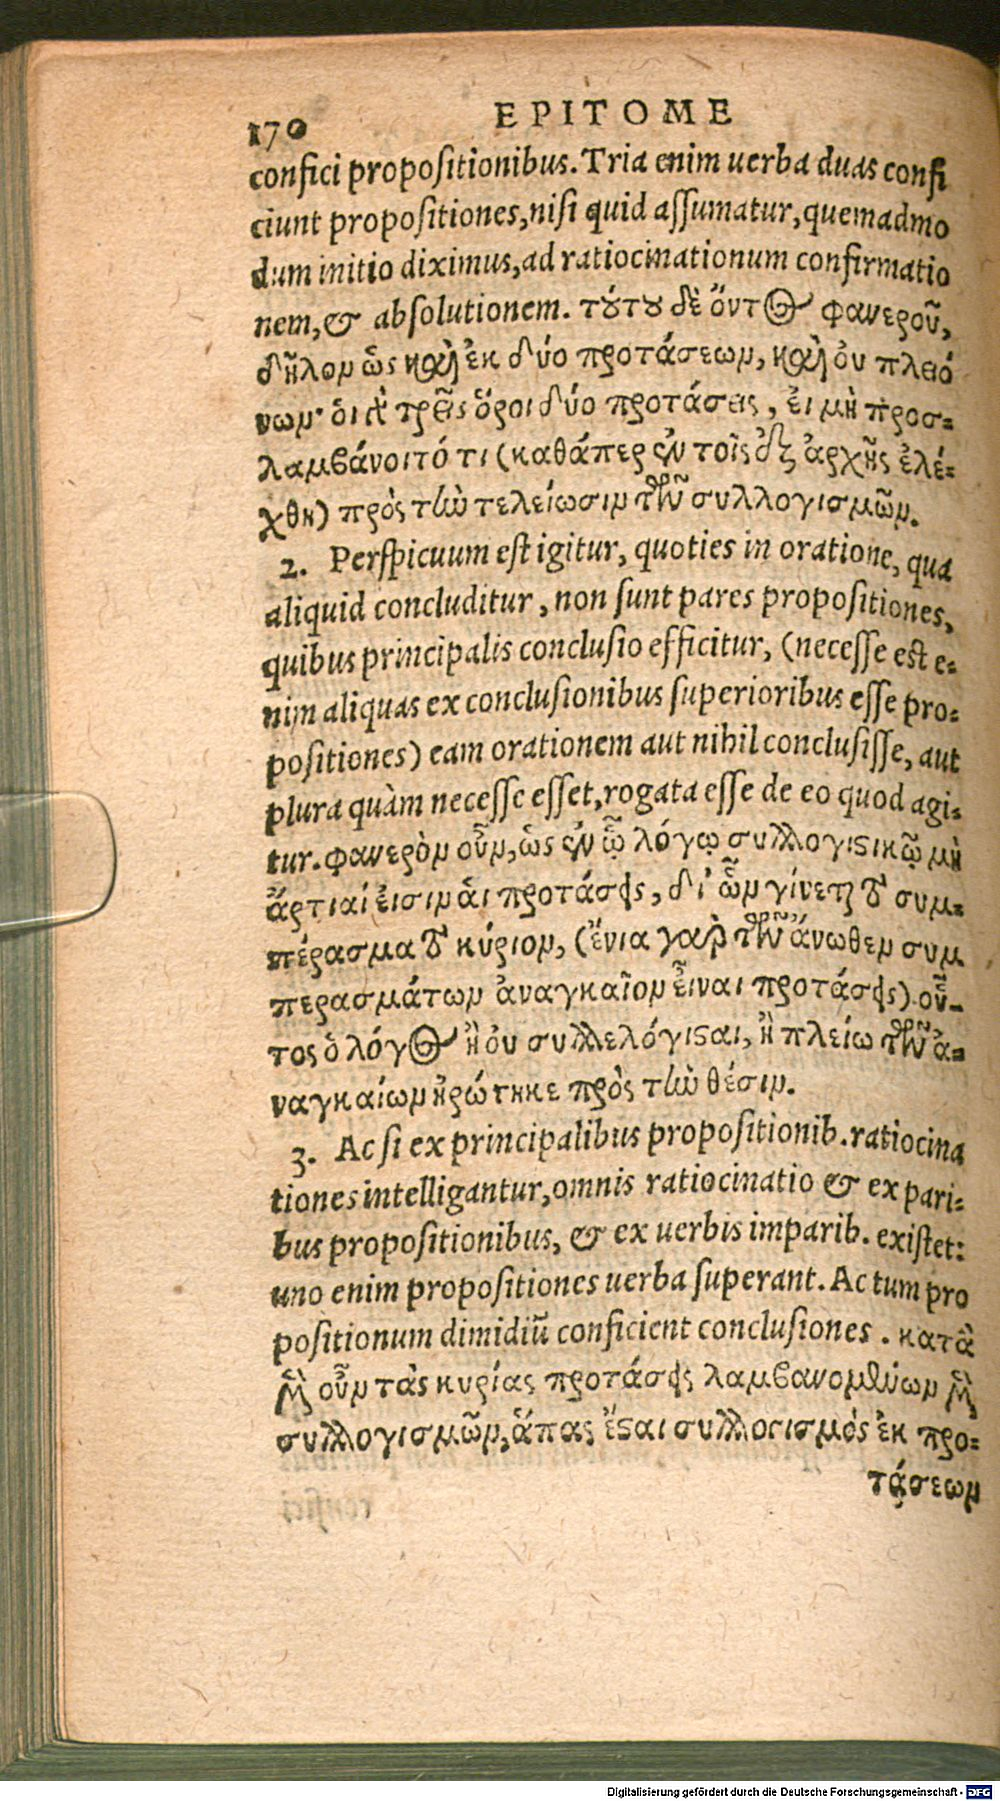 170 EPITOME
confici propositionibus. Tria enim uerba duas confi
ciunt propositiones, nisi quid assumatur, quemadmo
dum initio diximus, ad ratiocinationum confirmatio
nem, & absolutionem. τούτου δὲ ὄντος φανεροῦ,
δῆλον ὡς καὶ ἐκ δύο προτάσεων, καὶ οὐ πλειό
νων· ὁι γὰρ τρεῖς ὅροι δύο προτάσεις, ἐι μὴ προσ-
λαμβάνοιτό τι (καθάπερ ἐν τοῖς ἐξ ἀρχῆς ἐλέ-
χθη) πρὸς τὴν τελείωσιν τῶν συλλογισμῶν.
2. Perspicuum est igitur, quoties in oratione, qua
aliquid concluditur, non sunt pares propositiones,
quibus principalis conclusio efficitur, (necesse est e-
nim aliquas ex conclusionibus superioribus esse pro-
positiones) eam orationem aut nihil conclusisse, aut
plura quàm necesse esset, rogata esse de eo quod agi-
tur. φανερὸν οὖν, ὡς ἐν ᾧ λόγῳ συλλογιστικῷ μὴ
ἄρτιαί ἐισιν ἁι προτάσεις, δι' ὧν γίνεται τὸ συμ-
πέρασμα τὸ κύριον, (ἔνια γὰρ τῶν ἄνωθεν συμ
περασμάτων ἀναγκαῖον εἶναι προτάσεις) οὗ-
τος ὁ λόγος ἢ οὐ συλλελόγισται, ἢ πλείω τῶν ἀ-
ναγκαίων ἠρώτηκε πρὸς τὴν θέσιν.
3. Ac si ex principalibus propositionib. ratiocina
tiones intelligantur, omnis ratiocinatio & ex pari-
bus propositionibus, & ex uerbis imparib. existet:
uno enim propositiones uerba superant. Ac tum pro
positionum dimidiũ conficient conclusiones. κατὰ
μὲν οὖν τὰς κυρίας προτάσεις λαμβανομένων τῶν
συλλογισμῶν, ἅπας ἔσται συλλοgισμὸς ἐκ προ-
τάσεων
Digitalisierung gefördert durch die Deutsche Forschungsgemeinschaft - DFG